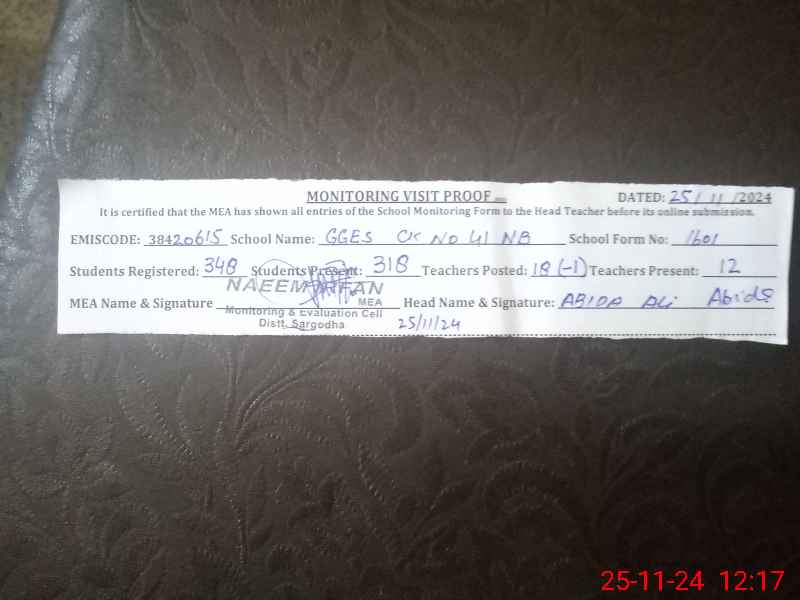 MONITORING VISIT PROOF DATED: 25/11/2024
It is certified that the MEA has shown all entries of the School Monitoring Form to the Head Teacher before its online submission.
EMISCODE: 38420615 School Name: GGES CK NO 41 NB School Form No: 1601
Students Registered: 348 Students Present: 318 Teachers Posted: 18 (-1) Teachers Present: 12
NAEEM
MEA Name & Signature MEA Head Name & Signature: ABIDA ALI Abida
Monitoring & Evaluation Cell
Distt. Sargodha 25/11/24
25-11-24 12:17